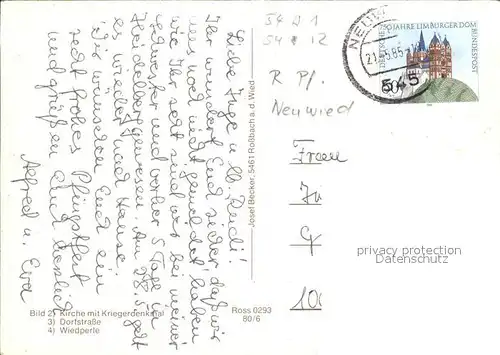 Liebe Inge u. lb. Heidi!
Ihr wundert Euch sicher, daß wir
uns noch nicht gemeldet haben
wie Ihr seht sind wir bei meiner
Schwester und vorher 5 Tage in
Heidelberg gewesen. Am 28.5. geht
es wieder nach Hause.
Wir wünschen Euch ein
recht frohes Pfingstfest
und grüßen Euch herzlich
Alfred u. Eva
Bild 2) Kirche mit Kriegerdenkmal
3) Dorfstraße
4) Wiedperle
Ross 0293
80/6
Josef Becker, 5461 Roßbach a. d. Wied
54 D 1
54 12
R Pf.
Neuwied
NEUW
21.5.85
545
DEUTSCHE BUNDESPOST
750 JAHRE LIMBURGER DOM
Frau
In
G
10
privacy protection
www.ansichtskarten-center.de